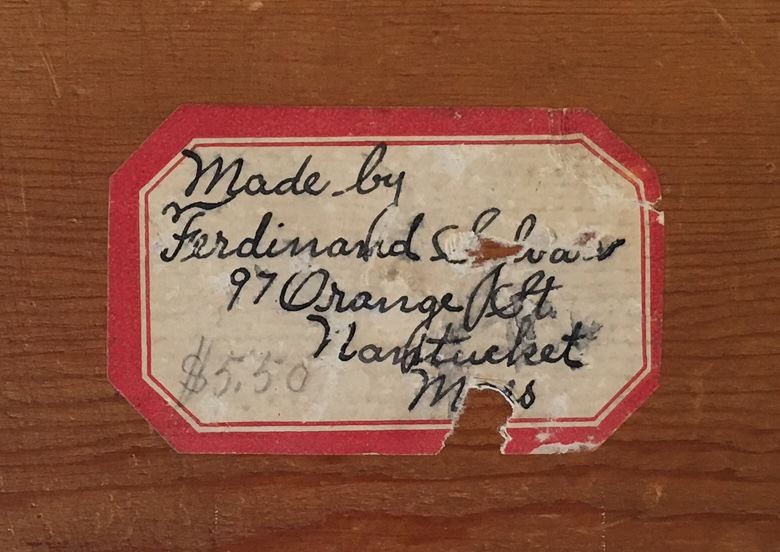 Made by
Ferdinand
97 Orange St
Nantucket
$5.50